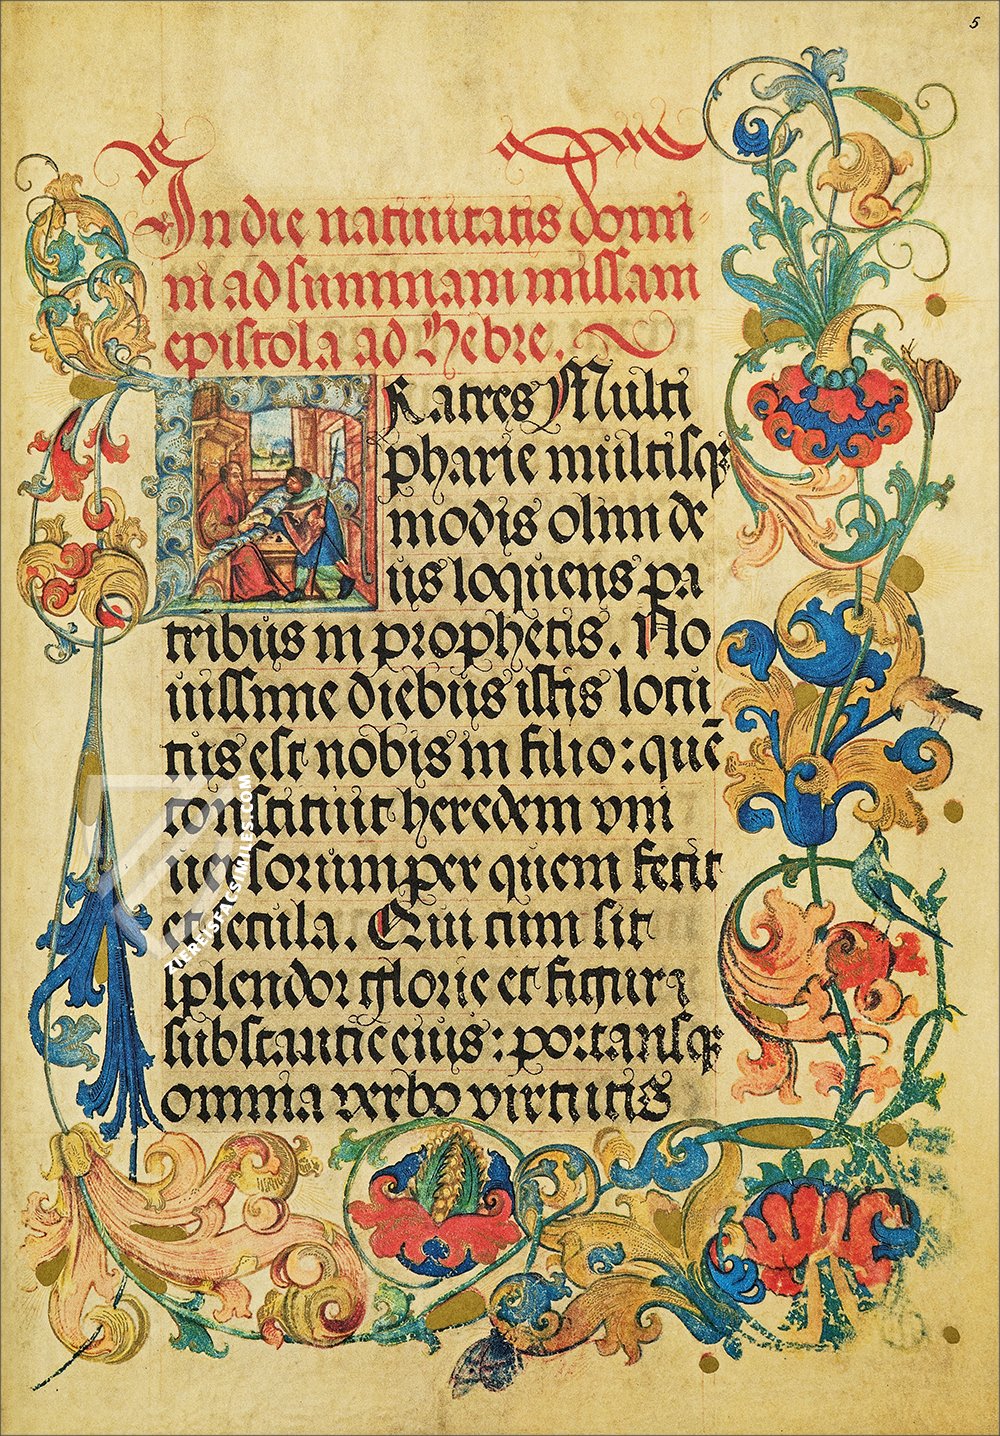 5
In die natiuitatis domi-
ni ad summam missam
epistola ad Hebre.
Fratres Multi
pharie multisq3
modis olim de
us loquens pa
tribus in prophetis. No
uissime diebus istis locu
tus est nobis in filio: quē
constituit heredem vni
uersorum per quem fecit
et secula. Qui cum sit
splendor glorie et figura
substantie eius: portansq3
omnia verbo virtutis
ZIEREISFACSIMILES.COM